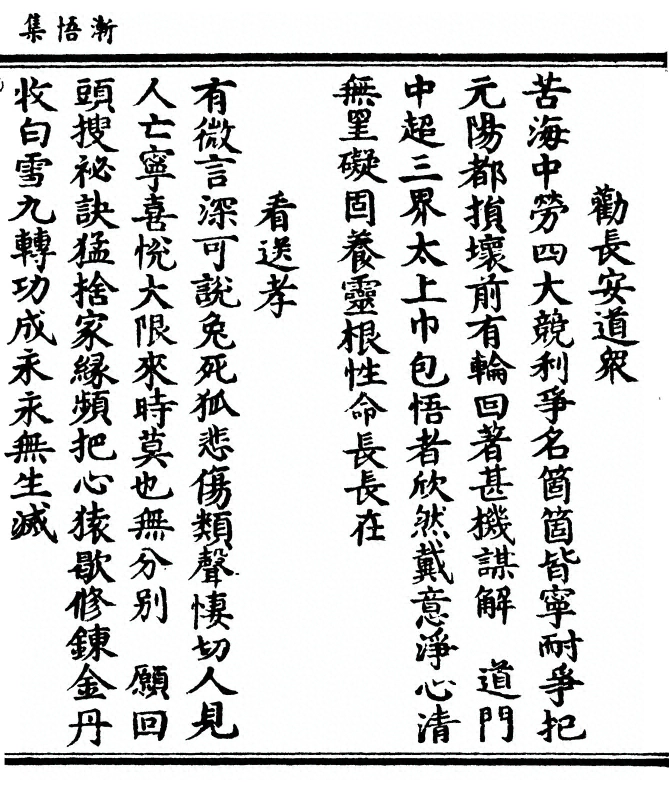 漸悟集
勸長安道衆
苦海中勞四大競利爭名箇箇皆寧耐爭把
元陽都損壞前有輪回著甚機謀解　道門
中超三界太上巾包悟者欣然戴意淨心清
無罣礙固養靈根性命長長在
看送孝
有微言深可說兔死狐悲傷類聲悽切人見
人亡寧喜悅大限來時莫也無分别　願回
頭搜祕訣猛捨家緣頻把心猿歇修鍊金丹
收白雪九轉功成永永無生滅